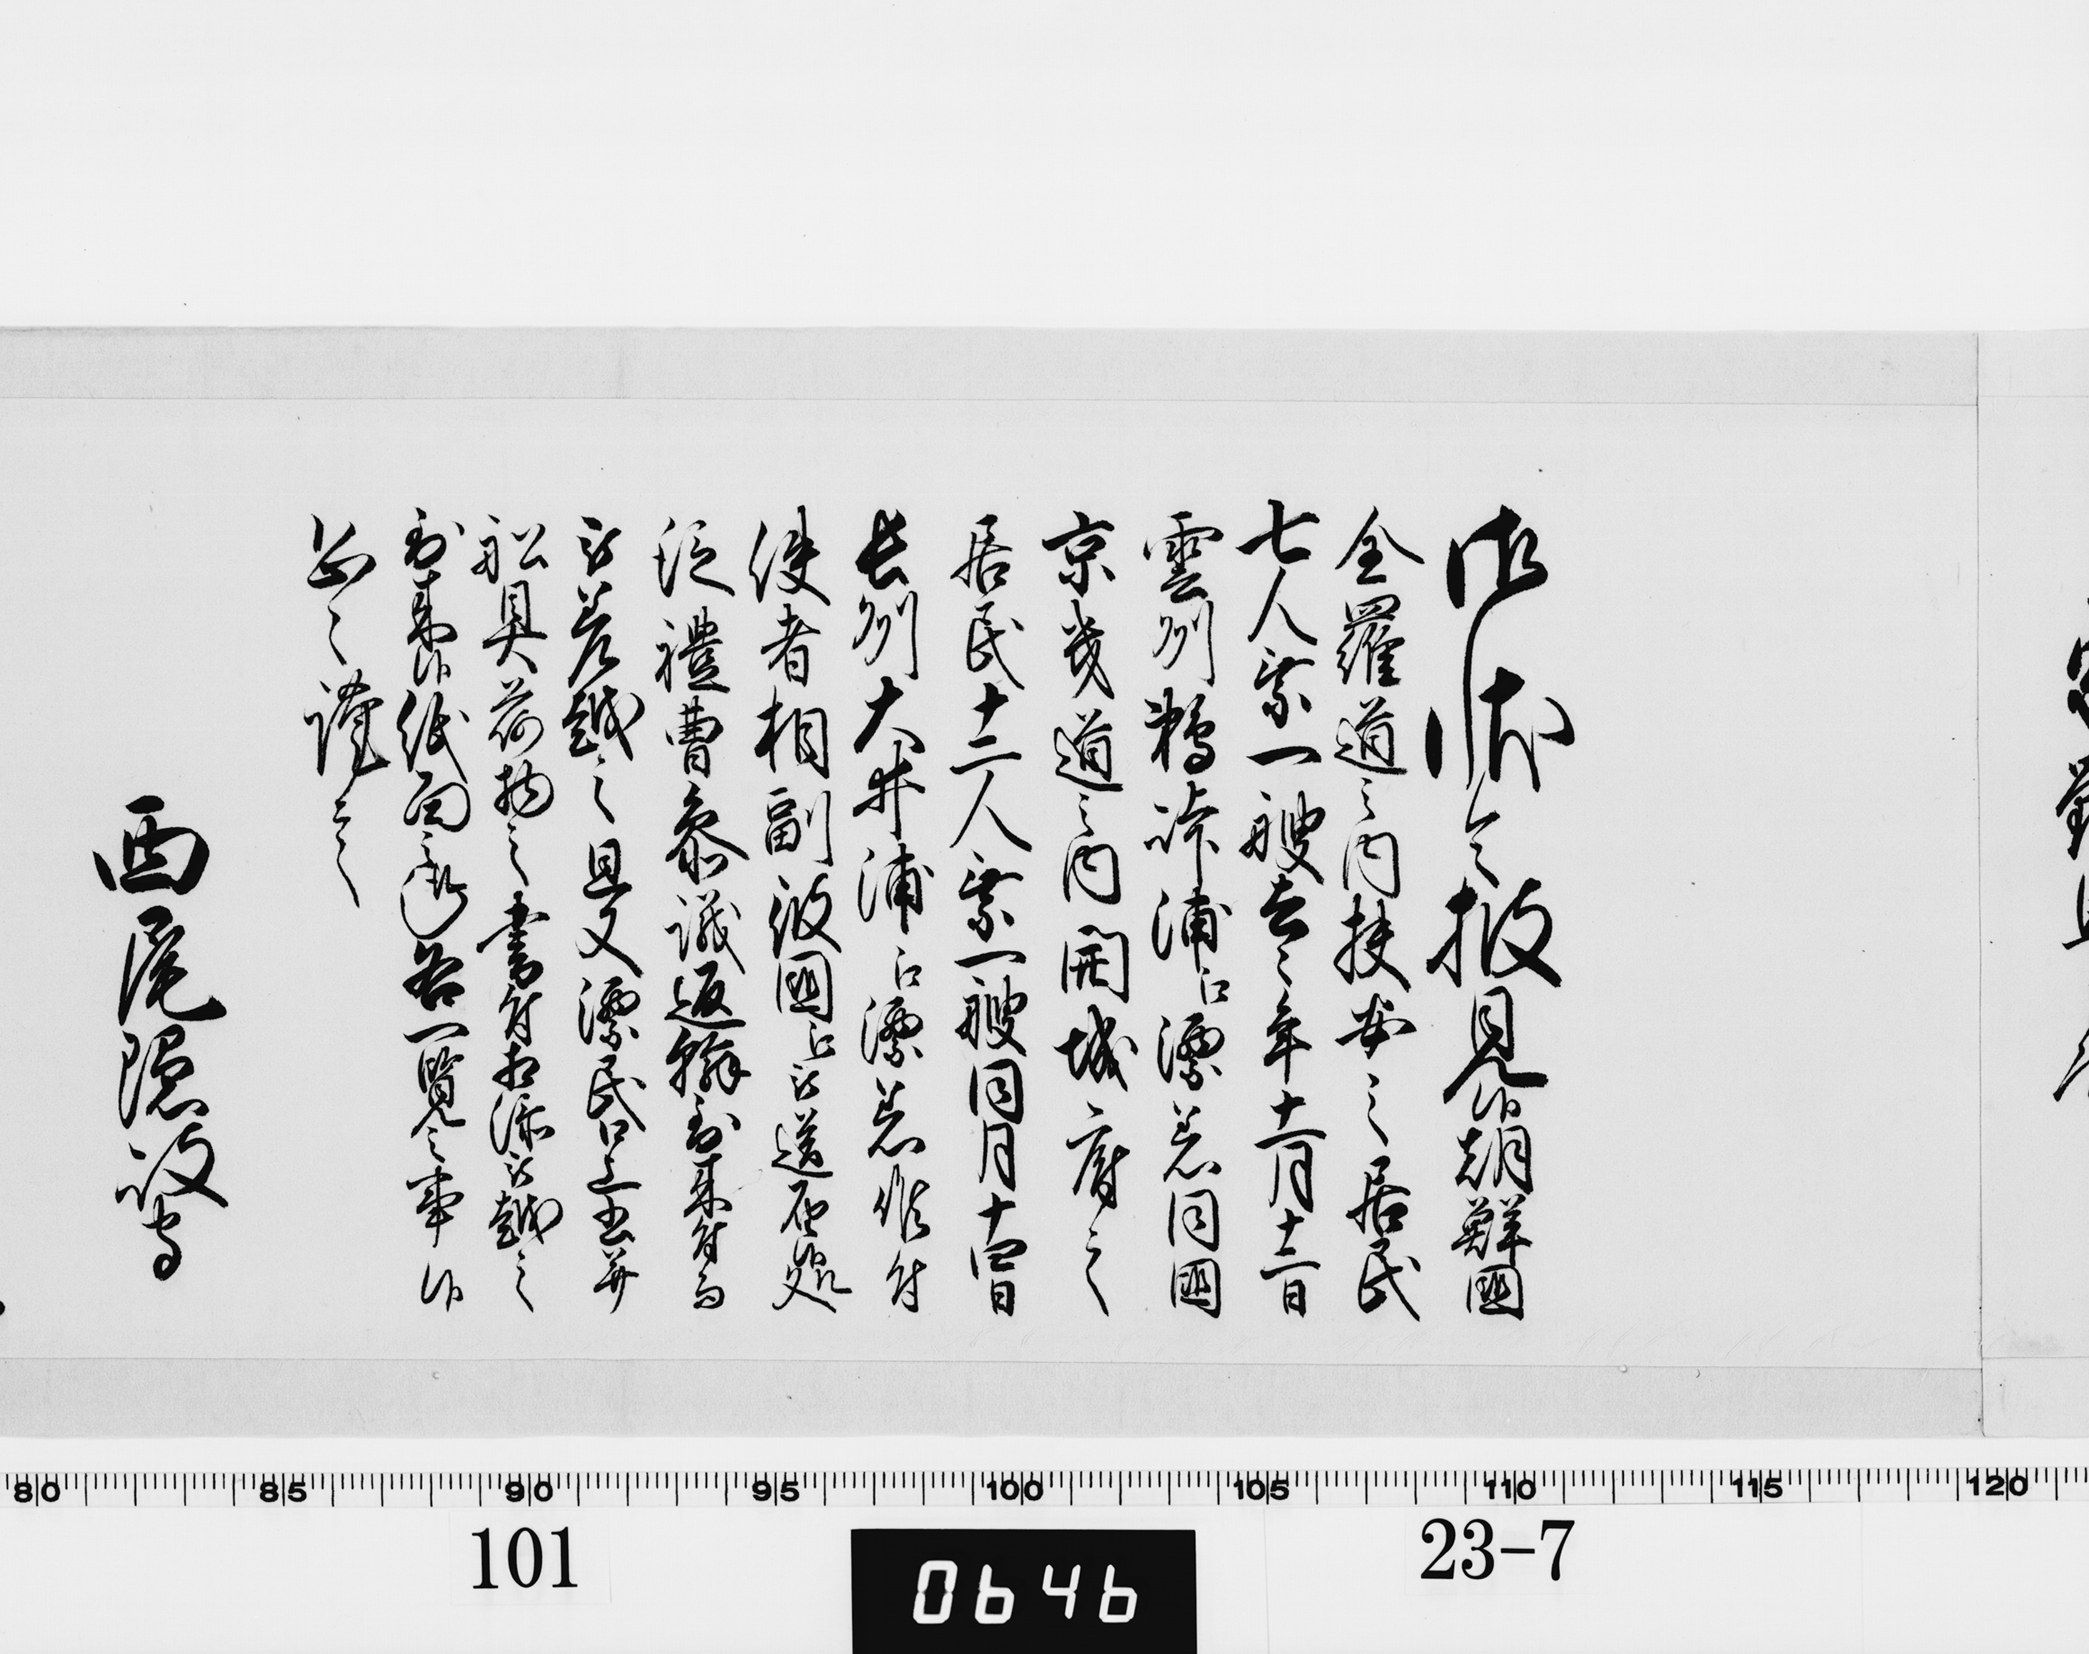 御状令披見候朝鮮国
全羅道之内扶安之居民
七人乗一艘去々年十一月十二日
雲州鵜峠浦江漂着同国
京畿道之内開城府之
居民十二人乗一艘同月十四日
長州大井浦江漂着候付
使者相副彼国江被送届候処
従禮曹参議返翰到来付而
被差越之且又漂民口上書并
船具荷物之書付相添被越之
到来候紙面之通各一覧令事候
恐々謹言
西尾隠岐守
101
0646
23-7
80 85 90 95 100 105 110 115 120